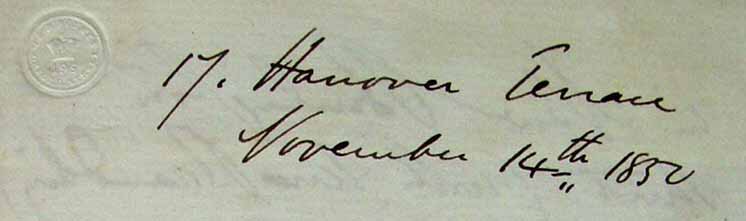 17. Hanover Terrace
November 14th 1850